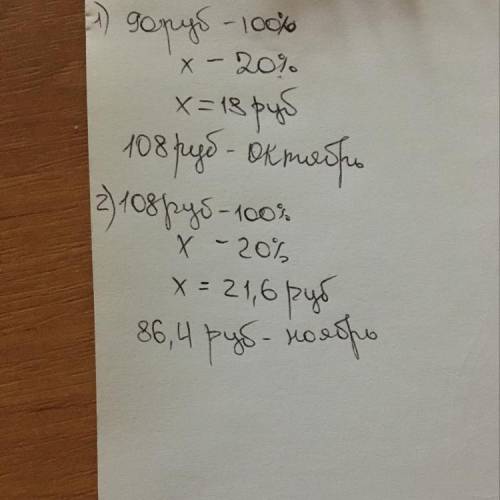 1) 90 руб - 100%
x - 20%
x = 18 руб
108 руб - октябрь
2) 108 руб - 100%
x - 20%
x = 21,6 руб
86,4 руб - ноябрь